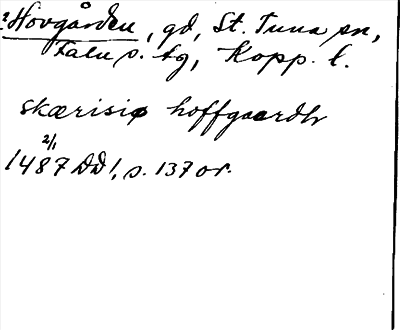 ?Hovgården, gd, St. Tuna sn,
Falu s. tg, Kopp. l.
skærisiø hoffgaardh
1487 2/1 DD!, s. 137 or.